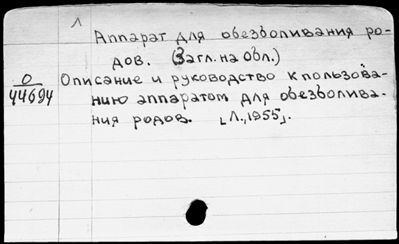 Аппарат для обезболивания ро-
дов. (Загл. на обл.)
О
44694
Описание и руководство к пользова-
нию аппаратом для обезболива-
ния родов. [Л., 1955].